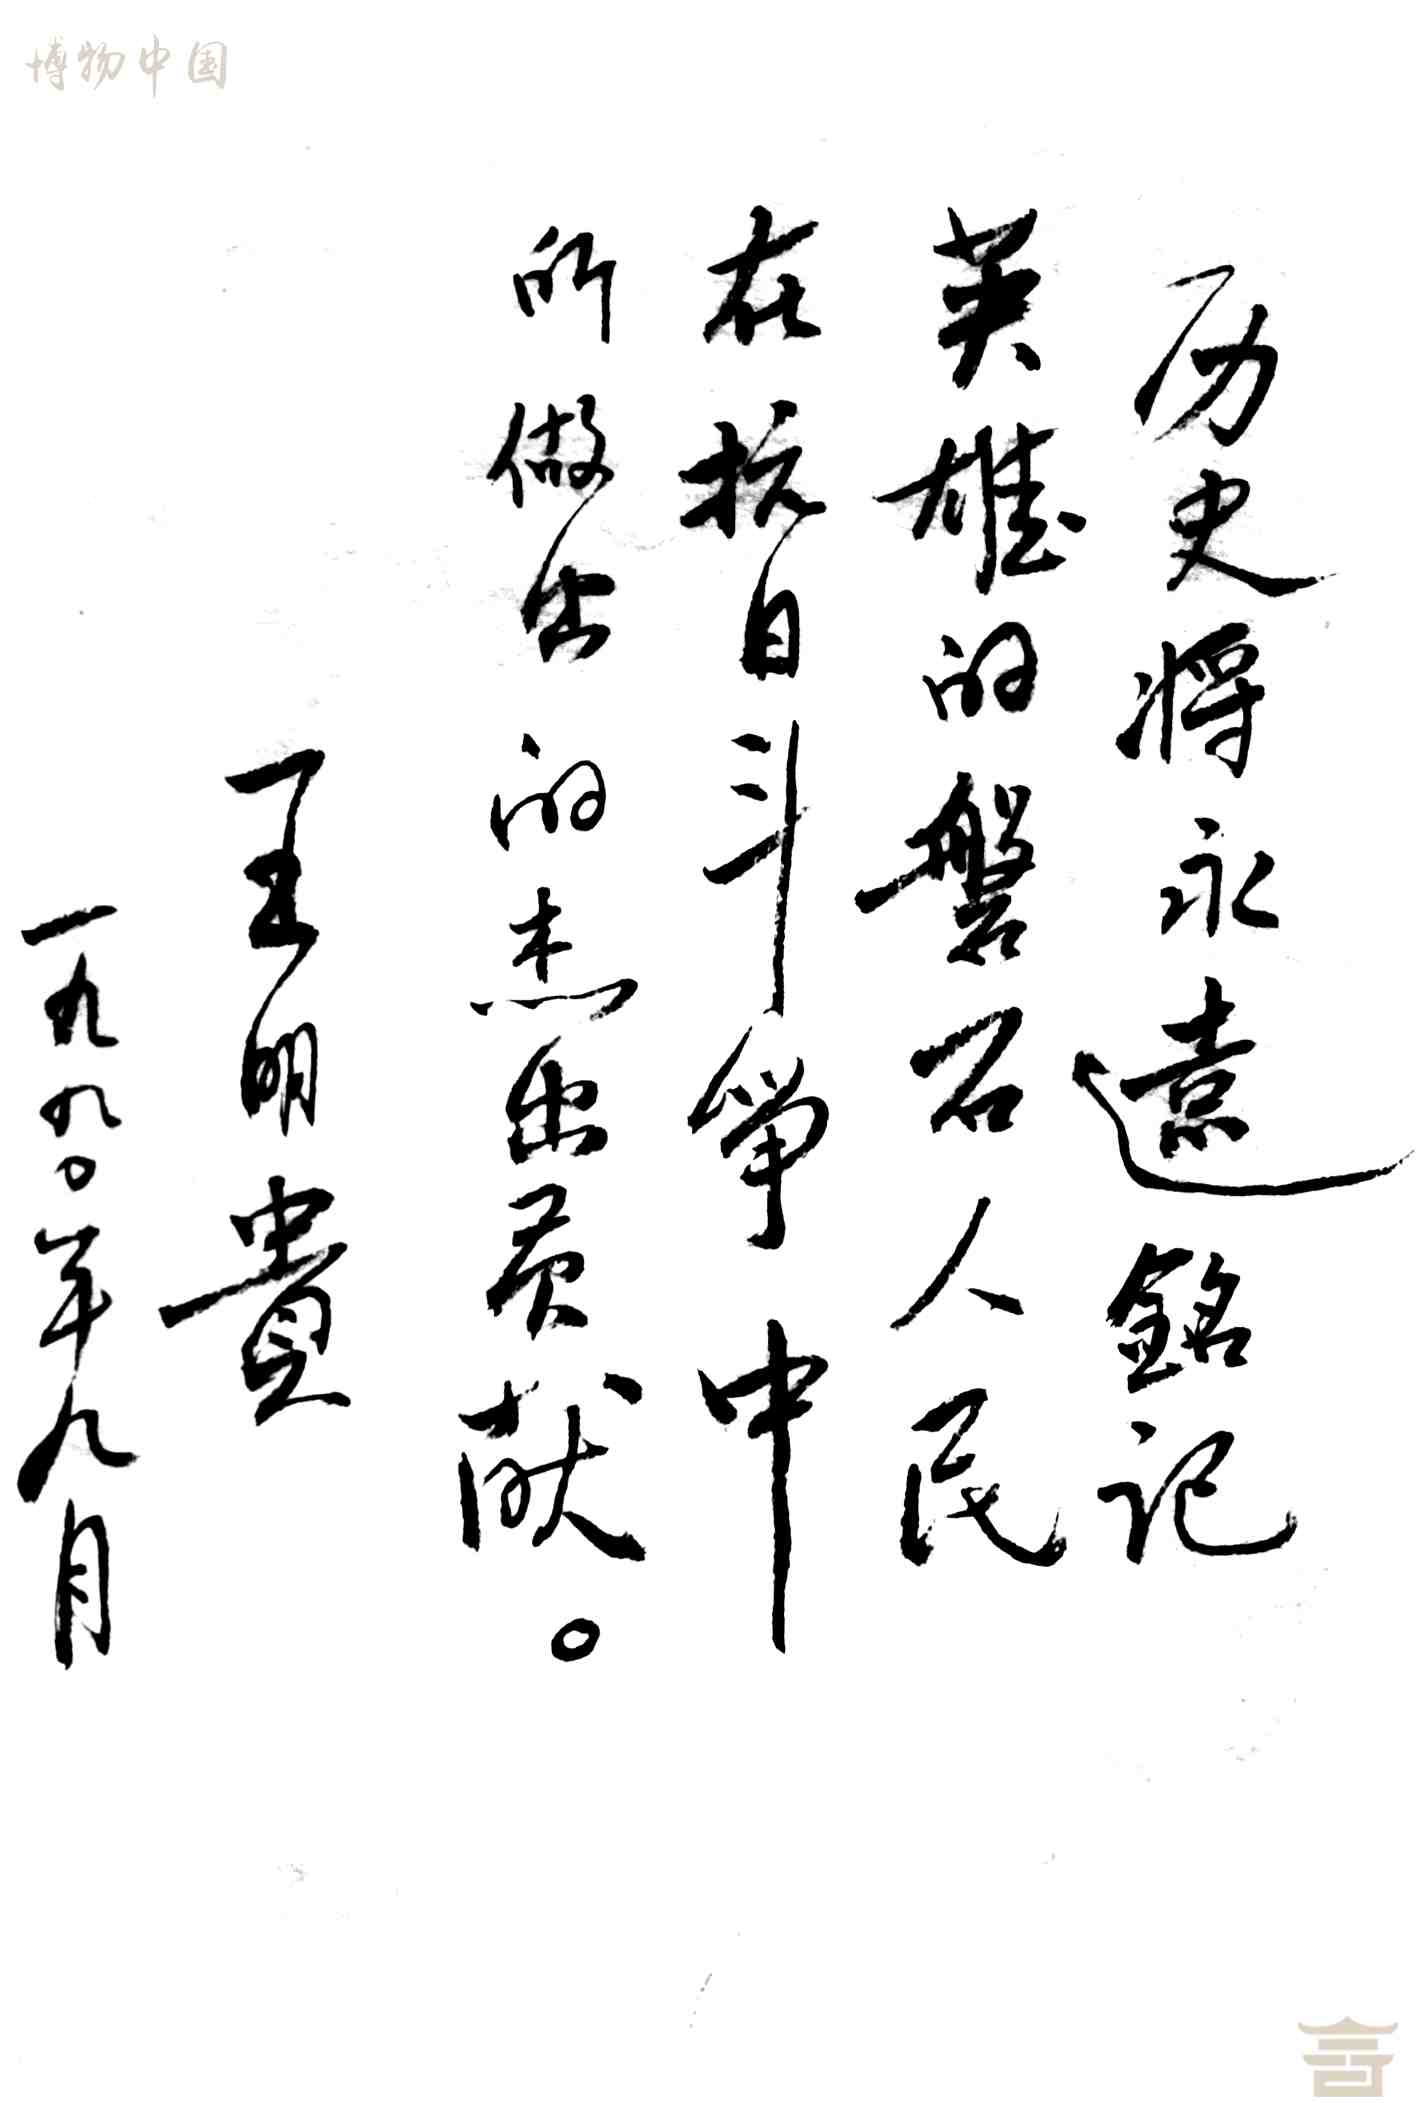 博物中国
历史将永遠銘记
英雄的磐石人民
在抗日斗争中
所做出的杰出贡献。
王明貴
一九九〇年九月